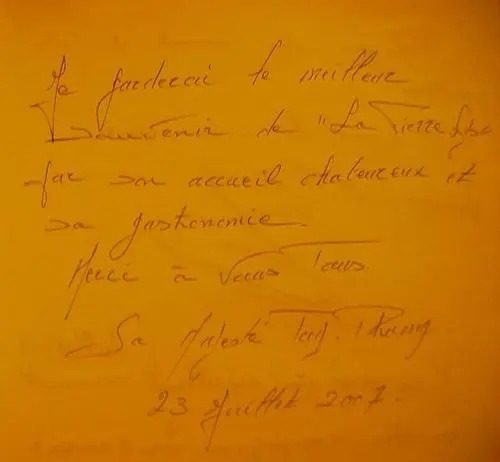 Je garderai le meilleur
Souvenir de "La Pierre
par son accueil chaleureux et
sa gastronomie.
Merci à Vous Tous
Sa Majesté
23 Juillet 2007.